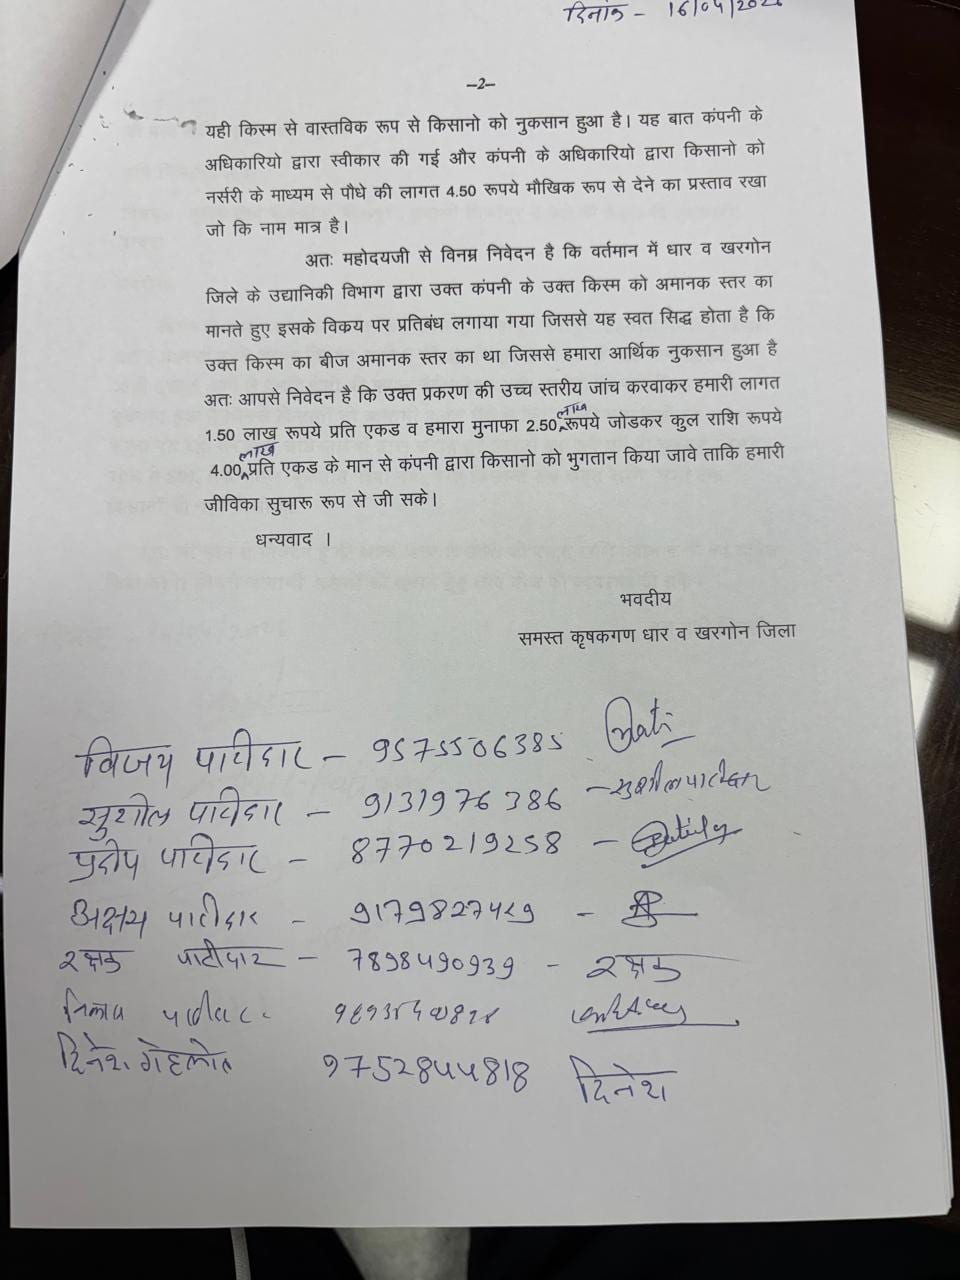 दिनांक - 16/04/202
-2-
यही किस्म से वास्तविक रूप से किसानो को नुकसान हुआ है। यह बात कंपनी के
अधिकारियो द्वारा स्वीकार की गई और कंपनी के अधिकारियो द्वारा किसानो को
नर्सरी के माध्यम से पौधे की लागत 4.50 रूपये मौखिक रूप से देने का प्रस्ताव रखा
जो कि नाम मात्र है।
अतः महोदयजी से विनम्र निवेदन है कि वर्तमान में धार व खरगोन
जिले के उद्यानिकी विभाग द्वारा उक्त कंपनी के उक्त किस्म को अमानक स्तर का
मानते हुए इसके विकय पर प्रतिबंध लगाया गया जिससे यह स्वत सिद्ध होता है कि
उक्त किस्म का बीज अमानक स्तर का था जिससे हमारा आर्थिक नुकसान हुआ है
अतः आपसे निवेदन है कि उक्त प्रकरण की उच्च स्तरीय जांच करवाकर हमारी लागत
1.50 लाख रूपये प्रति एकड व हमारा मुनाफा 2.50 लाख रूपये जोडकर कुल राशि रूपये
4.00 लाख प्रति एकड के मान से कंपनी द्वारा किसानो को भुगतान किया जावे ताकि हमारी
जीविका सुचारू रूप से जी सके।
धन्यवाद ।
भवदीय
समस्त कृषकगण धार व खरगोन जिला
विजय पाटीदार - 9575506385
सुशील पाटीदार - 9131976386 - सुशील पाटीदार
प्रदीप पाटीदार - 8770219258 -
अक्षय पाटीदार - 9179827459 -
रक्षक पाटीदार - 7898490939 - रक्षक
पाटीदार
दिनेश गेहलोत 9752844818 दिनेश